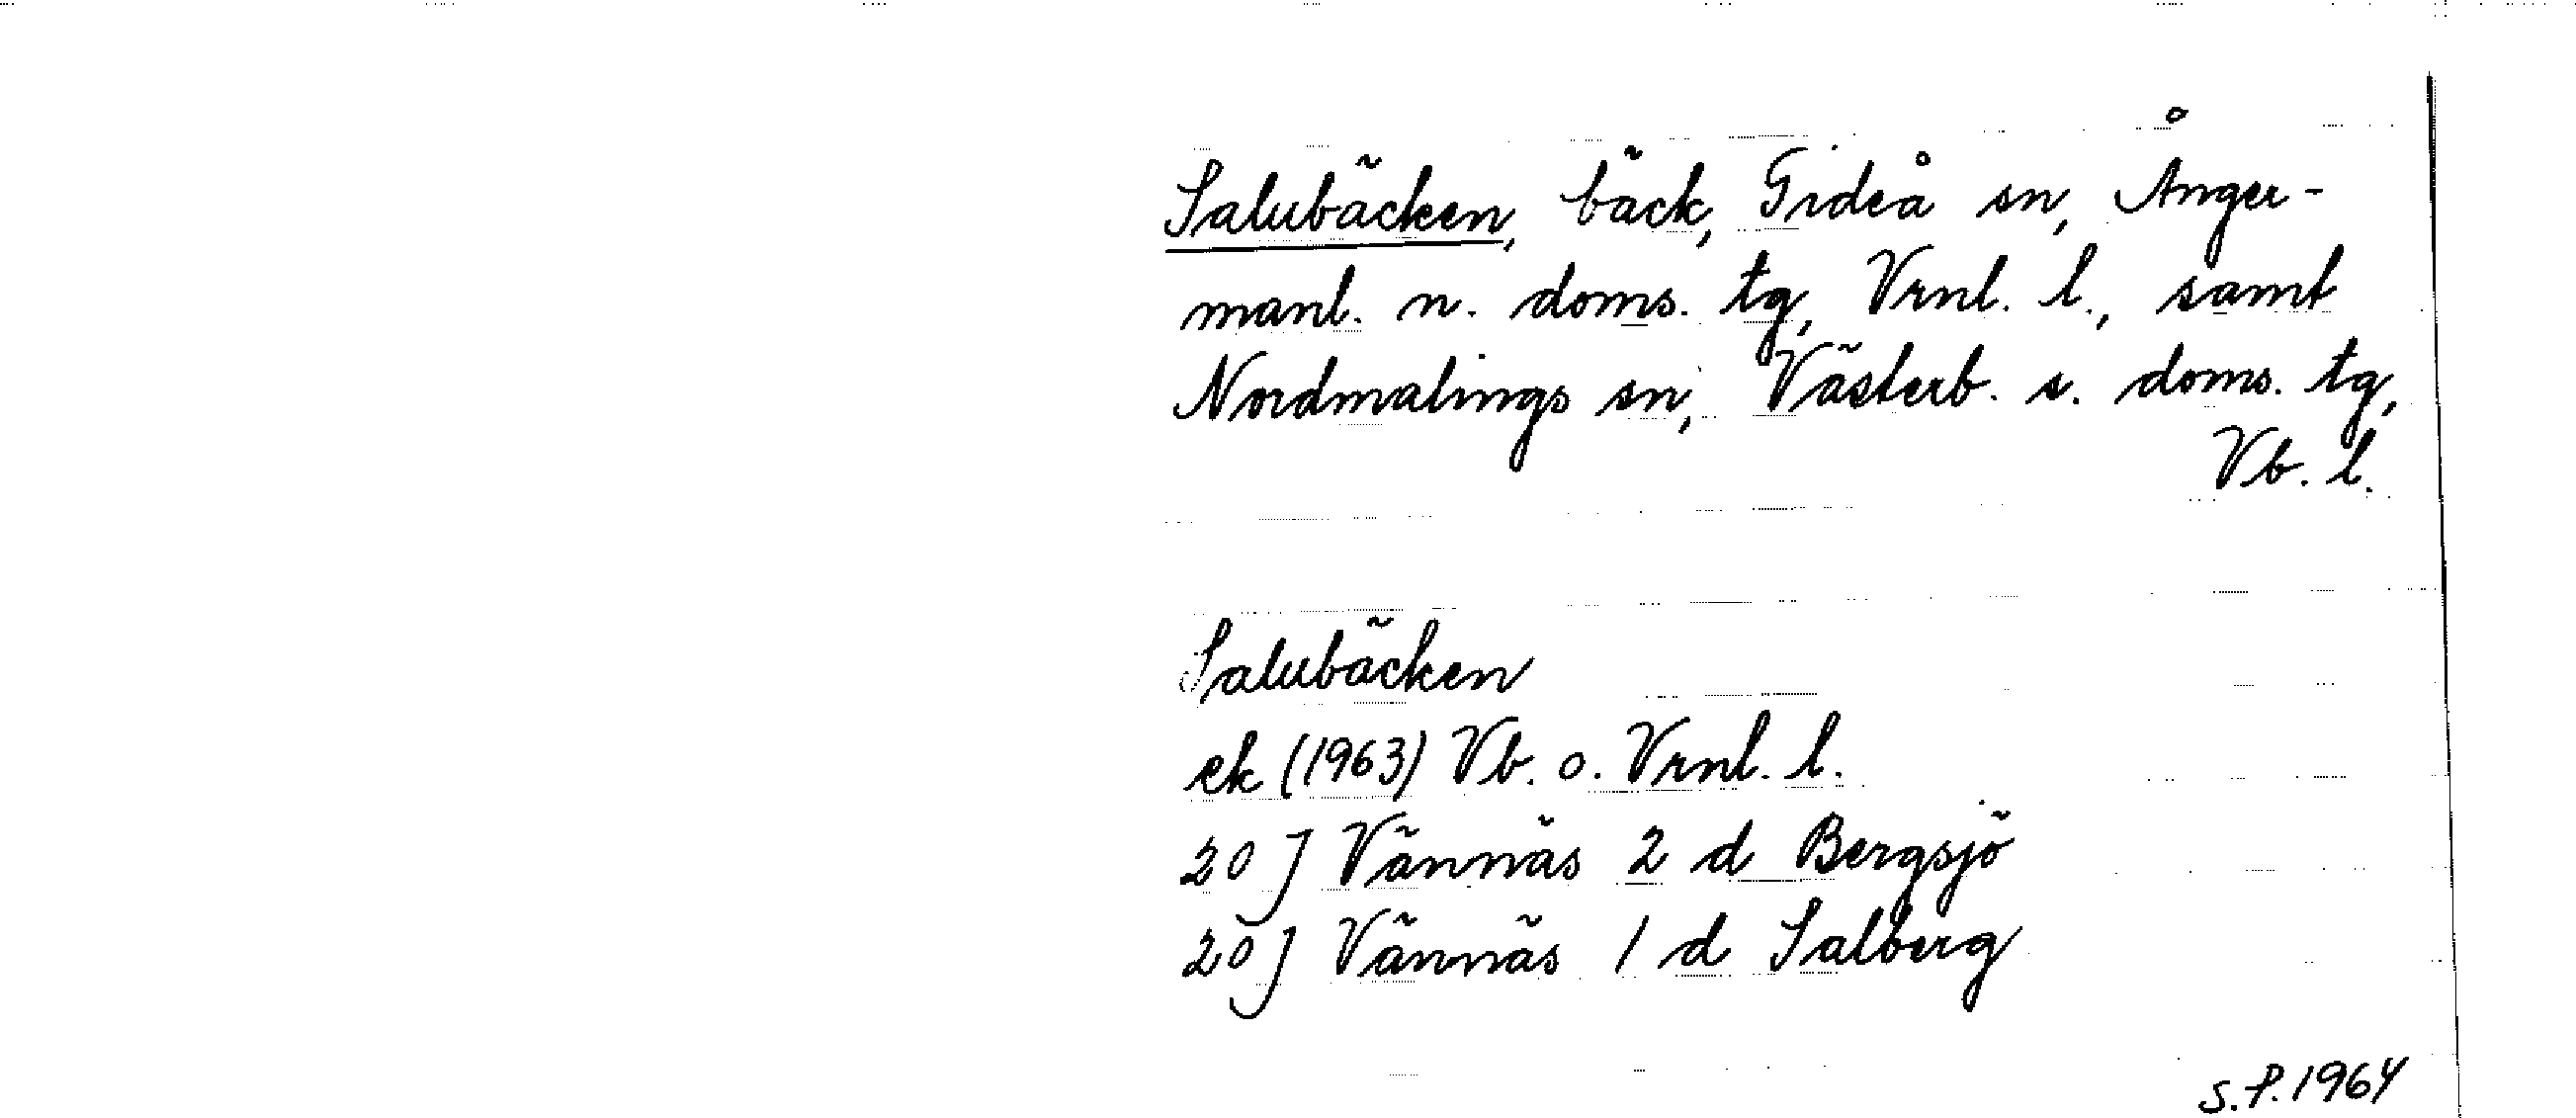 Salubäcken, bäck, Gideå sn, Ånger-
manl. n. doms. tg, Vrnl. l., samt
Nordmalings sn, Västerb. s. doms. tg,
Vb. l.
Salubäcken
ek (1963) Vb. o. Vrnl. l.
20 J Vännäs 2 d Bergsjö
20 J Vännäs 1 d Salberg
S.P. 1964